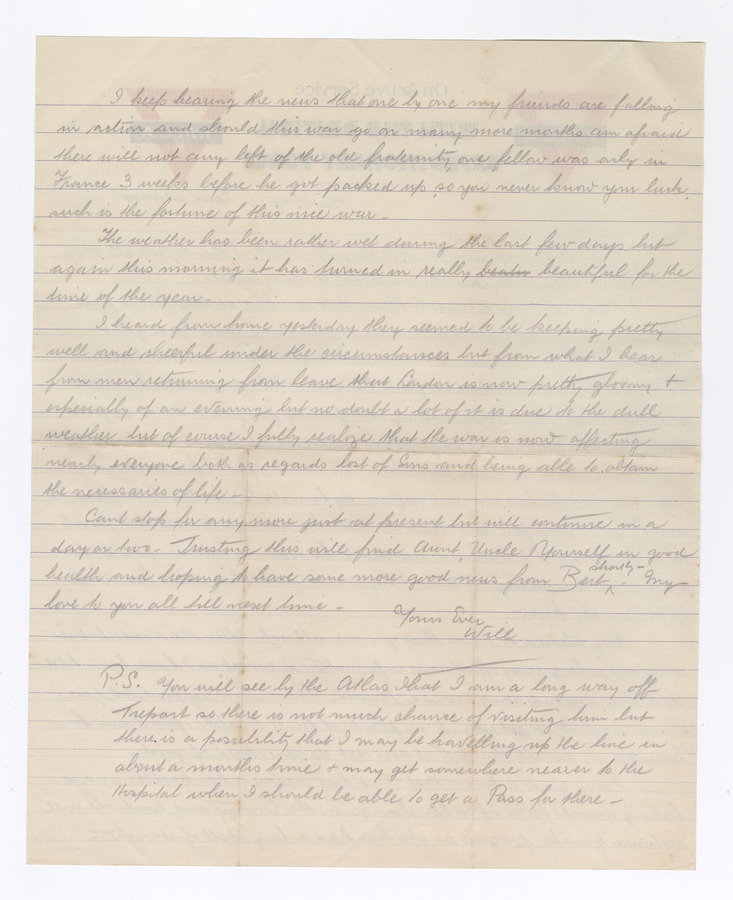 I keep hearing the news that one by one my friends are falling
in action and should this war go on many more months am afraid
there will not any left of the old fraternity, one fellow was only in
France 3 weeks before he got packed up, so you never know your luck,
such is the fortune of this nice war -
The weather has been rather wet during the last few days but
again this morning it has turned in really beautiful for the
time of the year -
I heard from home yesterday they seemed to be keeping pretty
well and cheerful under the circumstances but from what I hear
from men returning from leave that London is now pretty gloomy +
especially of an evening but no doubt a lot of it is due to the dull
weather but of course I fully realize that the war is now affecting
nearly everyone both as regards lost of Sons and being able to obtain
the necessaries of life -
Cant stop for any more just at present but will continue in a
day or two - Trusting this will find Aunt, Uncle & Yourself in good
health and hoping to have some more good news from Bert shortly - My
love to you all till next time -
Yours Ever
Will
P.S. You will see by the Atlas that I am a long way off
Treport so there is not much chance of visiting him but
there is a possibility that I may be travelling up the line in
about a months time + may get somewhere nearer to the
Hospital when I should be able to get a Pass for there -